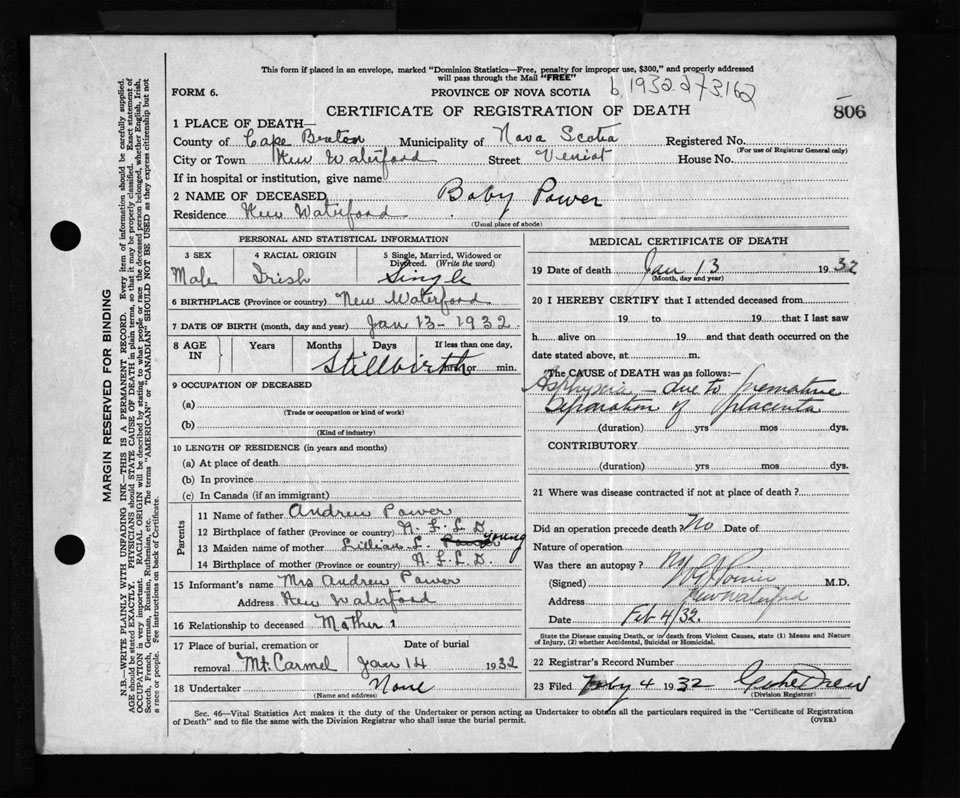 This form if placed in an envelope, marked "Dominion Statistics—Free, penalty for improper use, $300," and properly addressed
will pass through the Mail "FREE"
FORM 6.
PROVINCE OF NOVA SCOTIA
b 1932.273.162
CERTIFICATE OF REGISTRATION OF DEATH
806
1 PLACE OF DEATH—
County of Cape Breton Municipality of Nova Scotia Registered No.
(For use of Registrar General only)
City or Town New Waterford Street House No.
If in hospital or institution, give name
2 NAME OF DECEASED Baby Power
Residence New Waterford
(Usual place of abode)
PERSONAL AND STATISTICAL INFORMATION
3 SEX
Male
4 RACIAL ORIGIN
Irish
5 Single, Married, Widowed or
Divorced. (Write the word)
Single
6 BIRTHPLACE (Province or country) New Waterford
7 DATE OF BIRTH (month, day and year) Jan 13 - 1932.
8 AGE IN Years Months Days If less than one day,
Stillbirth hrs. or min.
9 OCCUPATION OF DECEASED
(a)
(Trade or occupation or kind of work)
(b)
(Kind of industry)
10 LENGTH OF RESIDENCE (in years and months)
(a) At place of death
(b) In province
(c) In Canada (if an immigrant)
Parents
11 Name of father Andrew Power
12 Birthplace of father (Province or country) N. F. L. D.
13 Maiden name of mother Lillian L. Power Young
14 Birthplace of mother (Province or country) N. F. L. D.
15 Informant's name Mrs Andrew Power
Address New Waterford
16 Relationship to deceased Mother
17 Place of burial, cremation or Date of burial
removal Mt. Carmel Jan 14 1932
18 Undertaker None
(Name and address)
MEDICAL CERTIFICATE OF DEATH
19 Date of death Jan 13 1932
(Month, day and year)
20 I HEREBY CERTIFY that I attended deceased from
19 to 19 that I last saw
h alive on 19 and that death occurred on the
date stated above, at m.
The CAUSE of DEATH was as follows:—
Asphyxia — due to premature
separation of placenta
(duration) yrs mos dys.
CONTRIBUTORY
(duration) yrs mos dys.
21 Where was disease contracted if not at place of death?
Did an operation precede death? No Date of
Nature of operation
Was there an autopsy? No
(Signed) M.D.
Address New Waterford
Date Feb 4/32.
State the Disease causing Death, or in death from Violent Causes, state (1) Means and Nature
of Injury, (2) whether Accidental, Suicidal or Homicidal.
22 Registrar's Record Number
23 Filed 4 1932 Drew
(Division Registrar)
Sec. 46—Vital Statistics Act makes it the duty of the Undertaker or person acting as Undertaker to obtain all the particulars required in the "Certificate of Registration
of Death" and to file the same with the Division Registrar who shall issue the burial permit.
(OVER)
MARGIN RESERVED FOR BINDING
N.B.—WRITE PLAINLY WITH UNFADING INK—THIS IS A PERMANENT RECORD. Every item of information should be carefully supplied.
AGE should be stated EXACTLY. PHYSICIANS should STATE CAUSE OF DEATH in plain terms, so that it may be properly classified. Exact statement of
OCCUPATION is very important. RACIAL ORIGIN will be described by stating to what people or race the deceased person belonged, whether English, Irish,
Scotch, French, German, Russian, Ruthenian, etc. The terms "AMERICAN" or "CANADIAN" SHOULD NOT BE USED as they express citizenship but not
a race or people. See instructions on back of Certificate.